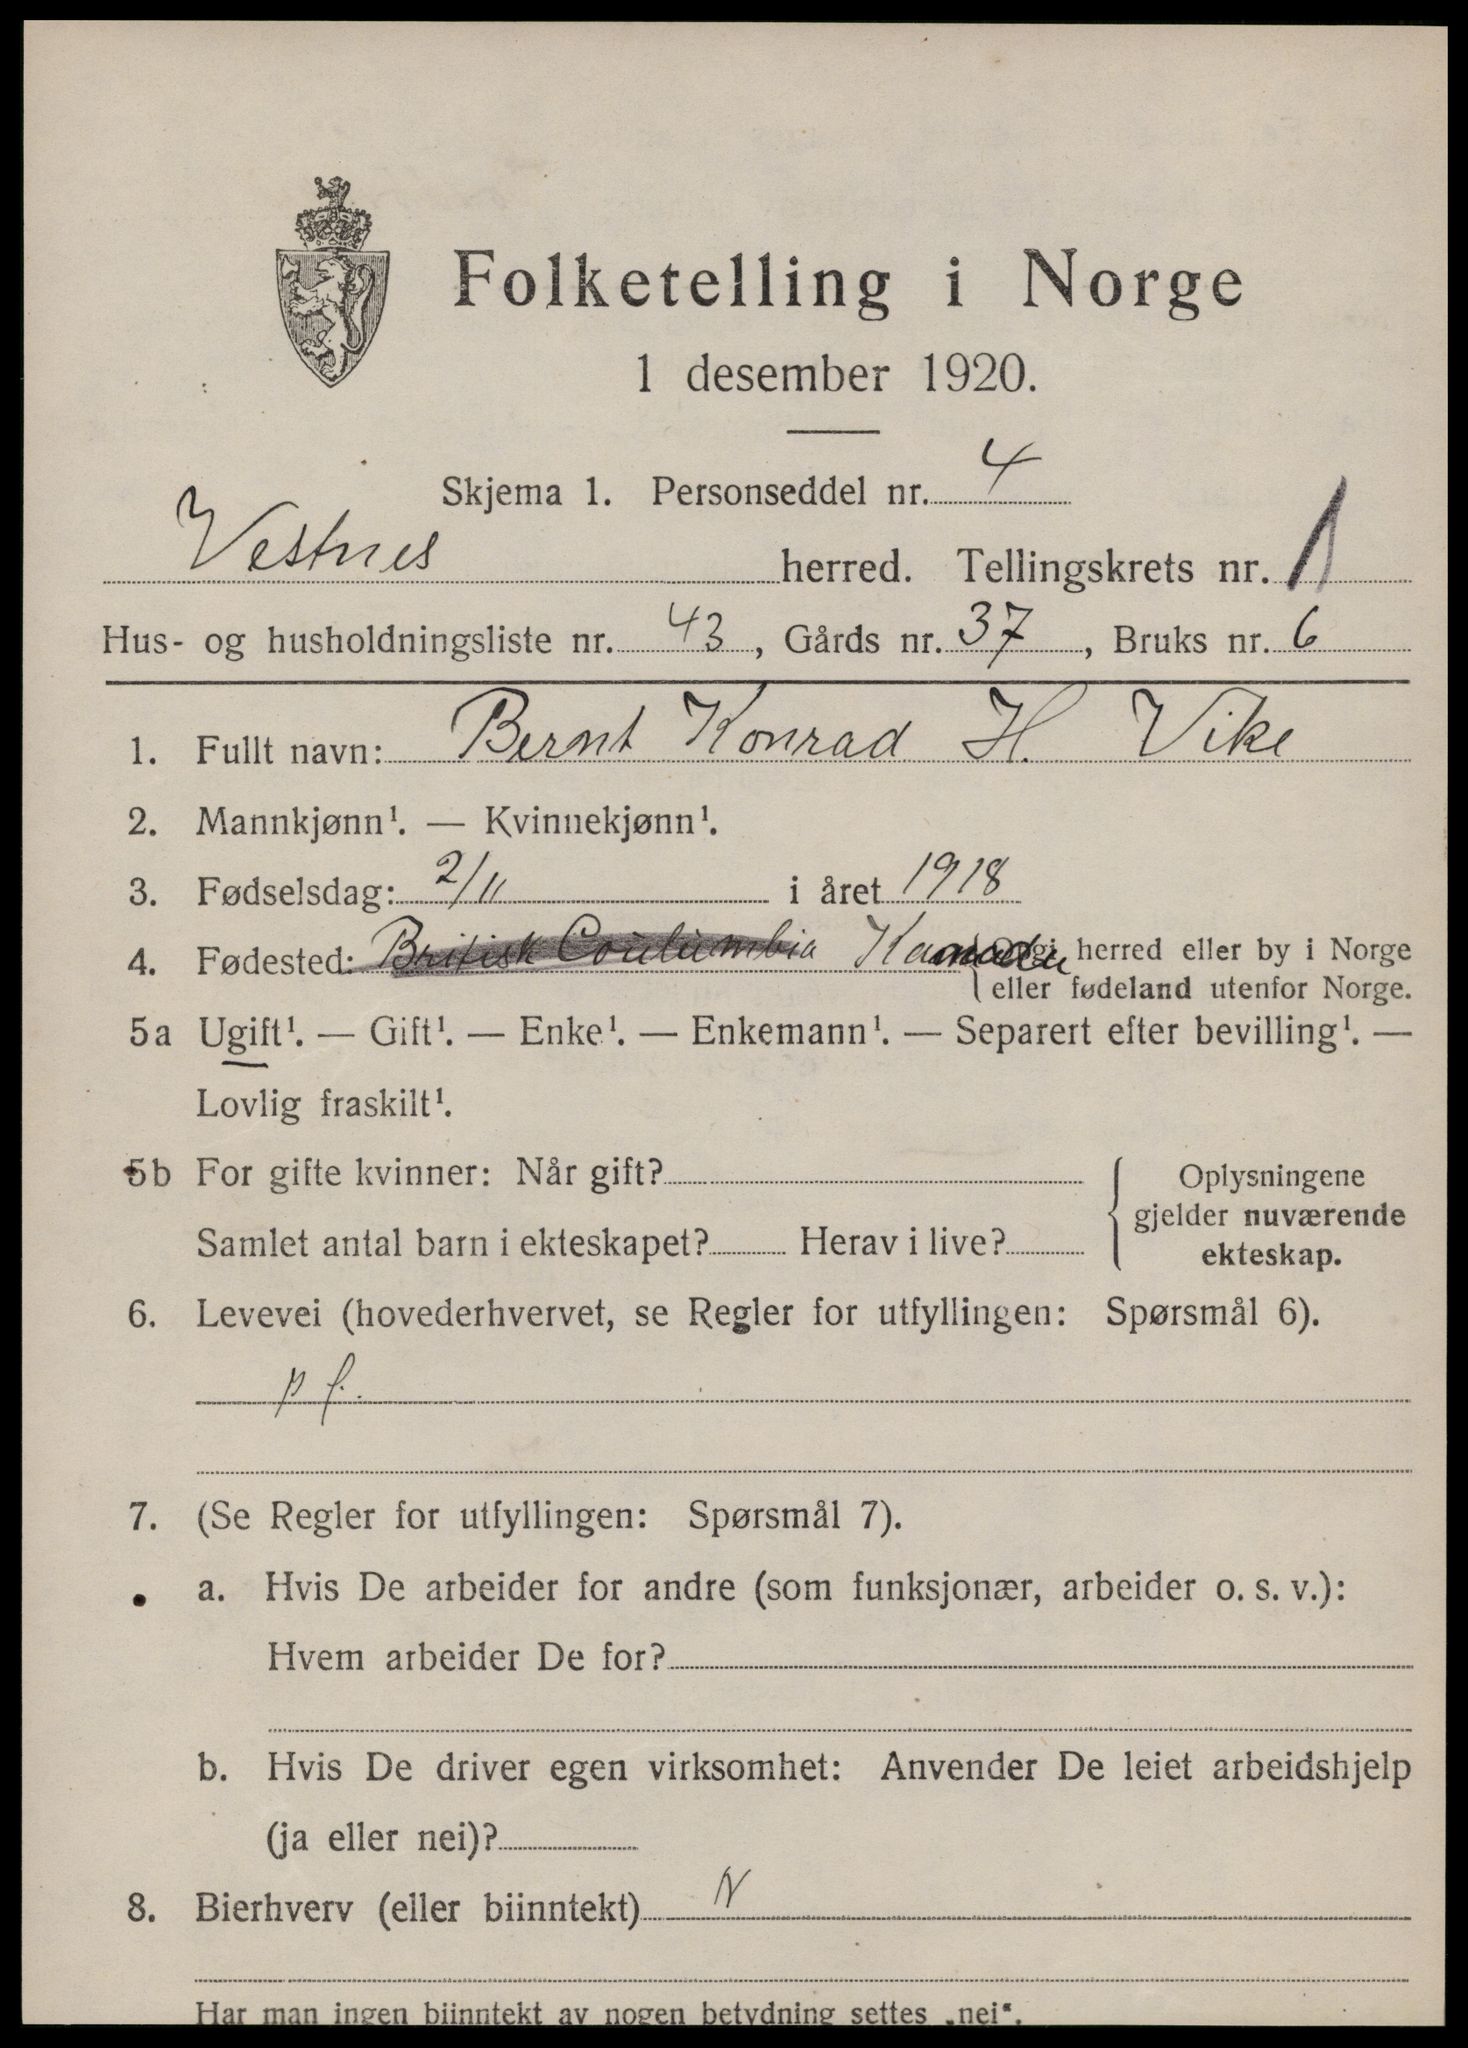 Folketelling i Norge
1 desember 1920.
Skjema 1. Personseddel nr. 4
Vestnes herred. Tellingskrets nr. 1
Hus- og husholdningsliste nr. 43, Gårds nr. 37, Bruks nr. 6
1. Fullt navn: Bernt Konrad H. Vike
2. Mannkjønn¹. — Kvinnekjønn¹.
3. Fødselsdag: 2/11 i året 1918
4. Fødested: British Coulumbia Kanada {Opgi herred eller by i Norge
eller fødeland utenfor Norge.
5a Ugift¹. — Gift¹. — Enke¹. — Enkemann¹. — Separert efter bevilling¹. —
Lovlig fraskilt¹.
5b For gifte kvinner: Når gift?
Samlet antal barn i ekteskapet? Herav i live?
Oplysningene
gjelder nuværende
ekteskap.
6. Levevei (hovederhvervet, se Regler for utfyllingen: Spørsmål 6).
p f.
7. (Se Regler for utfyllingen: Spørsmål 7).
a. Hvis De arbeider for andre (som funksjonær, arbeider o. s. v.):
Hvem arbeider De for?
b. Hvis De driver egen virksomhet: Anvender De leiet arbeidshjelp
(ja eller nei)?
8. Bierhverv (eller biinntekt) N
Har man ingen biinntekt av nogen betydning settes „nei“.